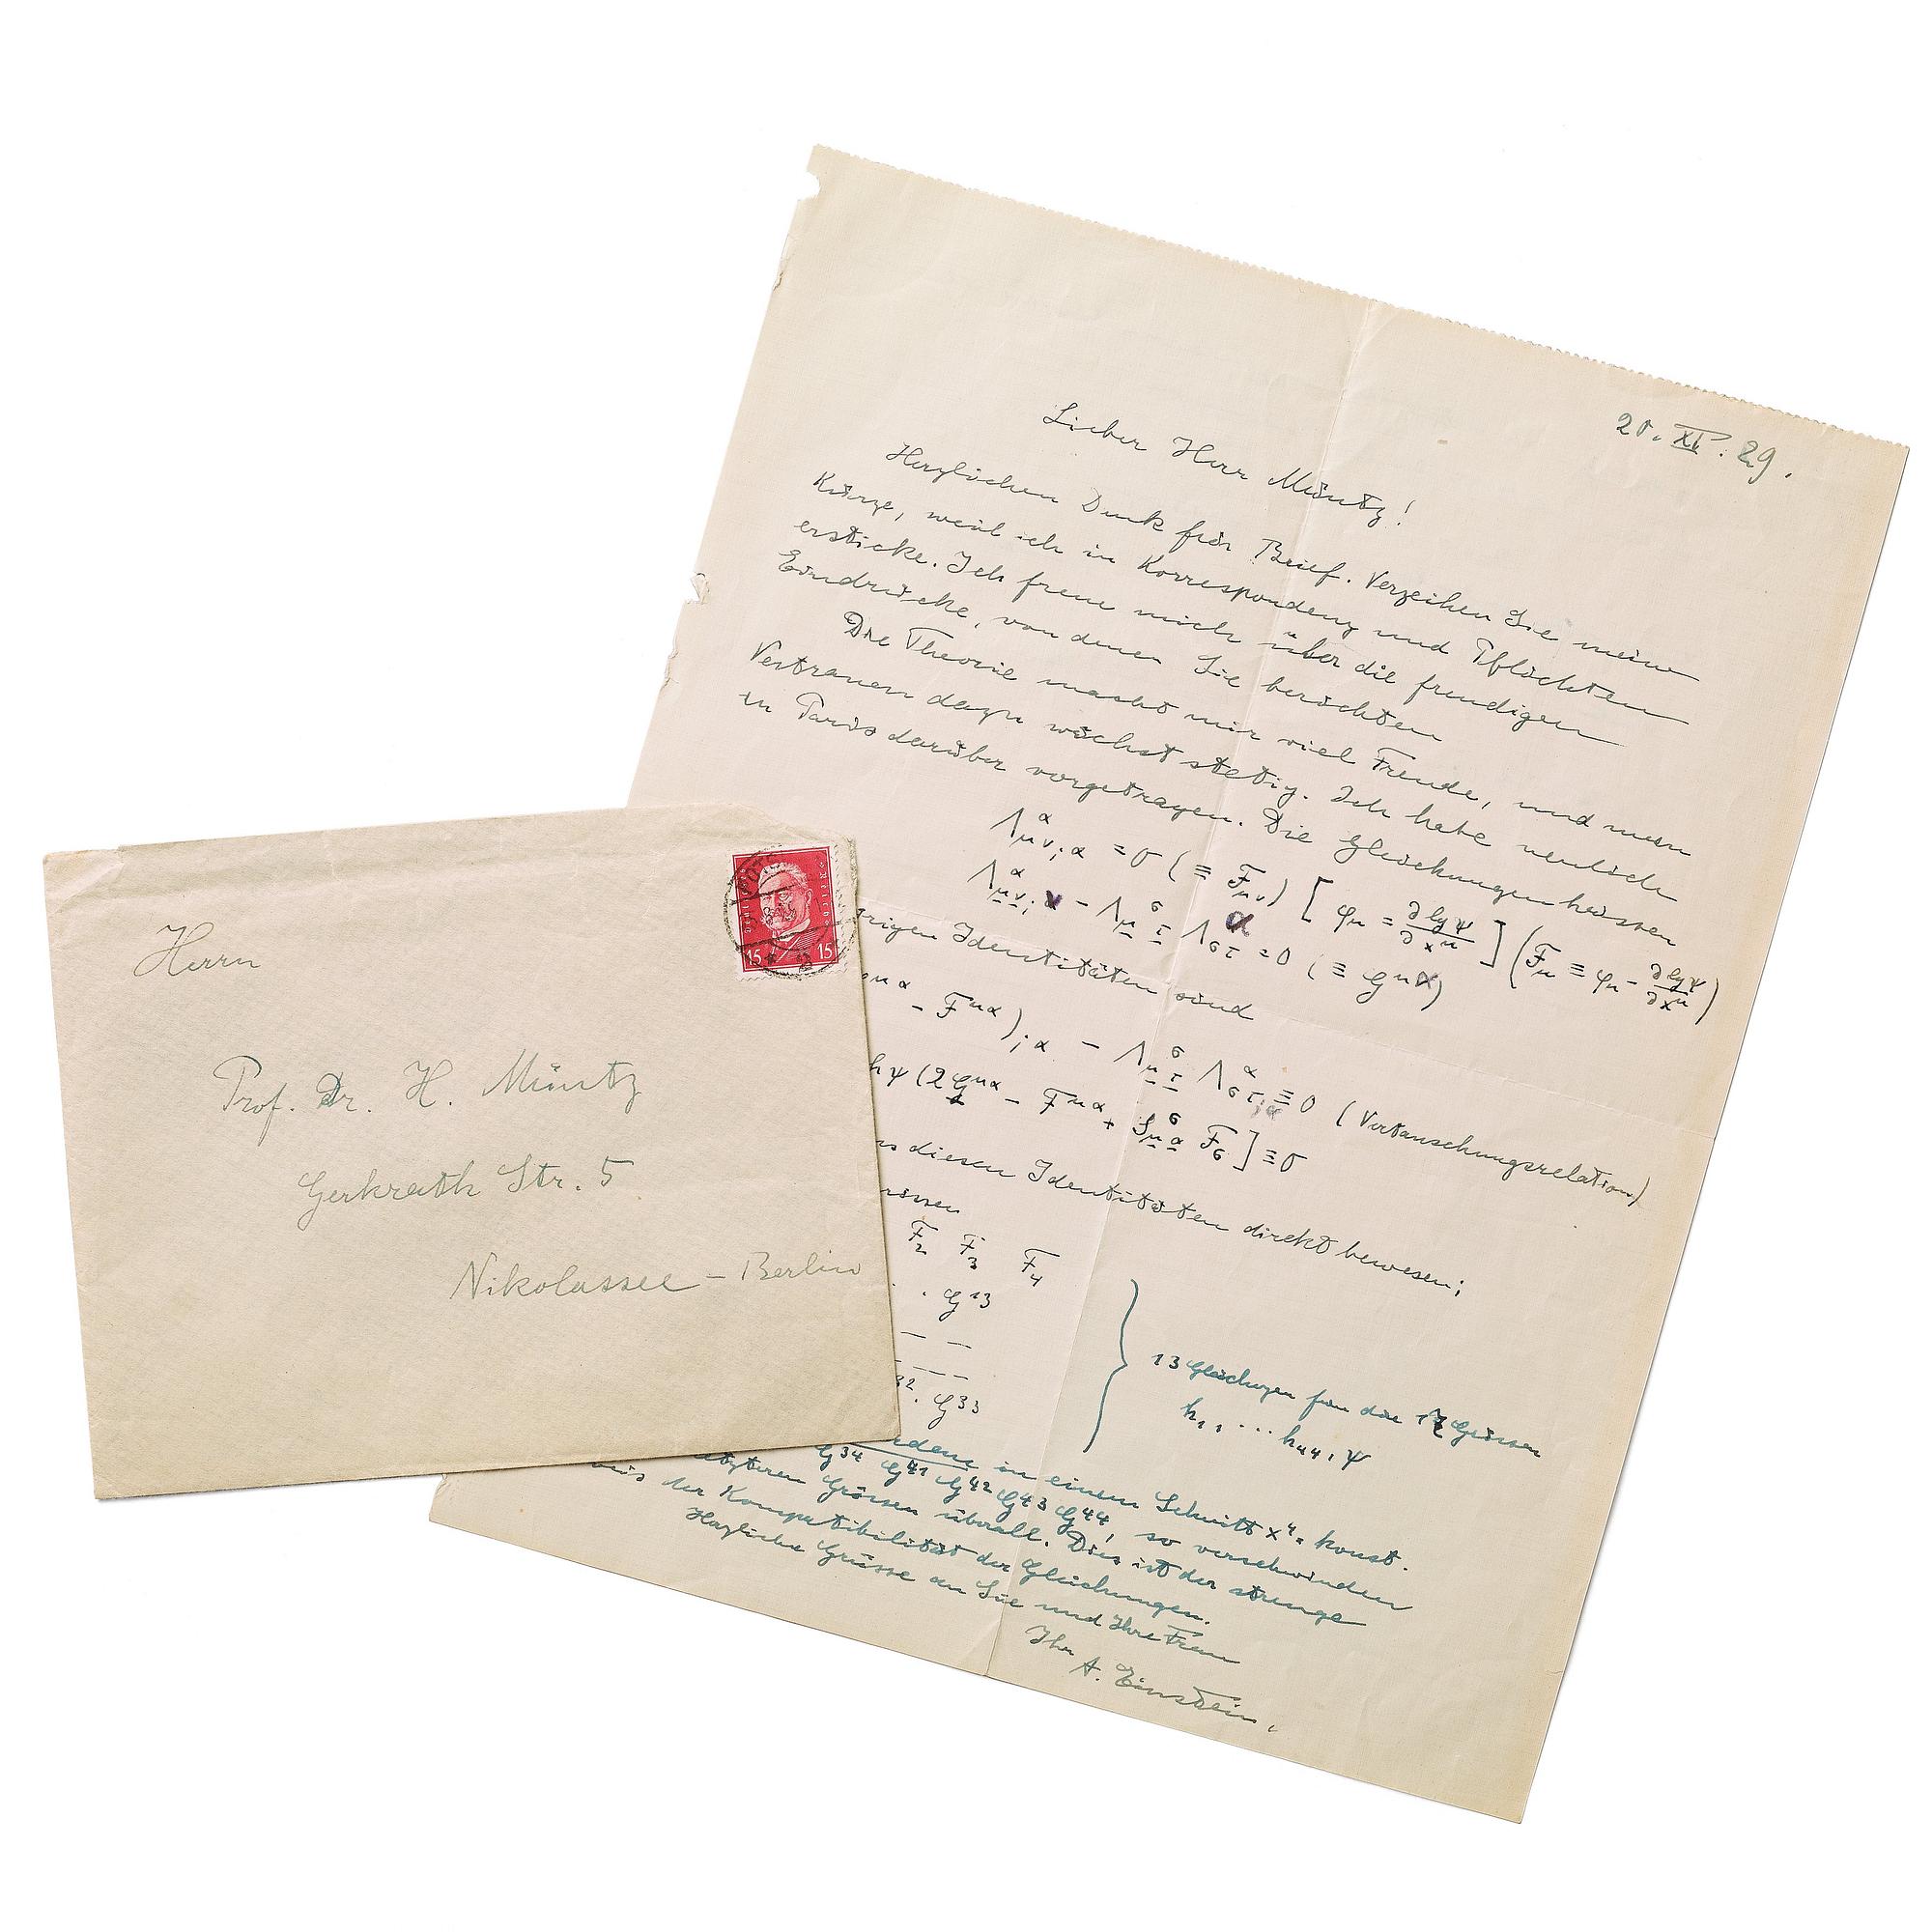 Herrn
Prof. Dr. H. Müntz
Gerkrath Str. 5
Nikolassee – Berlin
15 15
20. XI. 29.
Lieber Herr Müntz!
Herzlichen Dank für Brief. Verzeihen Sie meine
Kürze, weil ich in Korrespondenz und Pflichten
ersticke. Ich freue mich über die freudigen
Eindrücke, von denen Sie berichten
Die Theorie macht mir viel Freude, und mein
Vertrauen dazu wächst stetig. Ich habe neulich
in Paris darüber vorgetragen. Die Gleichungen heissen
Λ^α_{μν;α} = 0 (≡ F_{μν}) [φ_μ = ∂ lg ψ / ∂x^μ] (F_μ ≡ φ_μ – ∂ lg ψ / ∂x^μ)
Λ^α_{μν;ν} – Λ^σ_{μτ} Λ^α_{στ} = 0 (≡ G^{μα})
Identitäten sind
– F^{μα})_{;α} – Λ^σ_{μτ} Λ^α_{στ;α} ≡ 0 (Vertauschungsrelation)
ψ (2G^{μα} – F^{μα} + S^σ_{μα} F_σ] ≡ 0
diesen Identitäten direkt bewiesen;
F_2 F_3 F_4
. G^{13}
— —
— — —
32. G^{33}
13 Gleichungen für die Grössen
h_{11} ... h_{44}, ψ
in einem Schnitt x^4 = konst.
G^{34} G^{41} G^{42} G^{43} G^{44}, so verschwinden
Grössen überall. Dies ist der strenge
der Kompatibilität der Gleichungen.
Herzliche Grüsse an Sie und Ihre Frau
Ihr
A. Einstein.